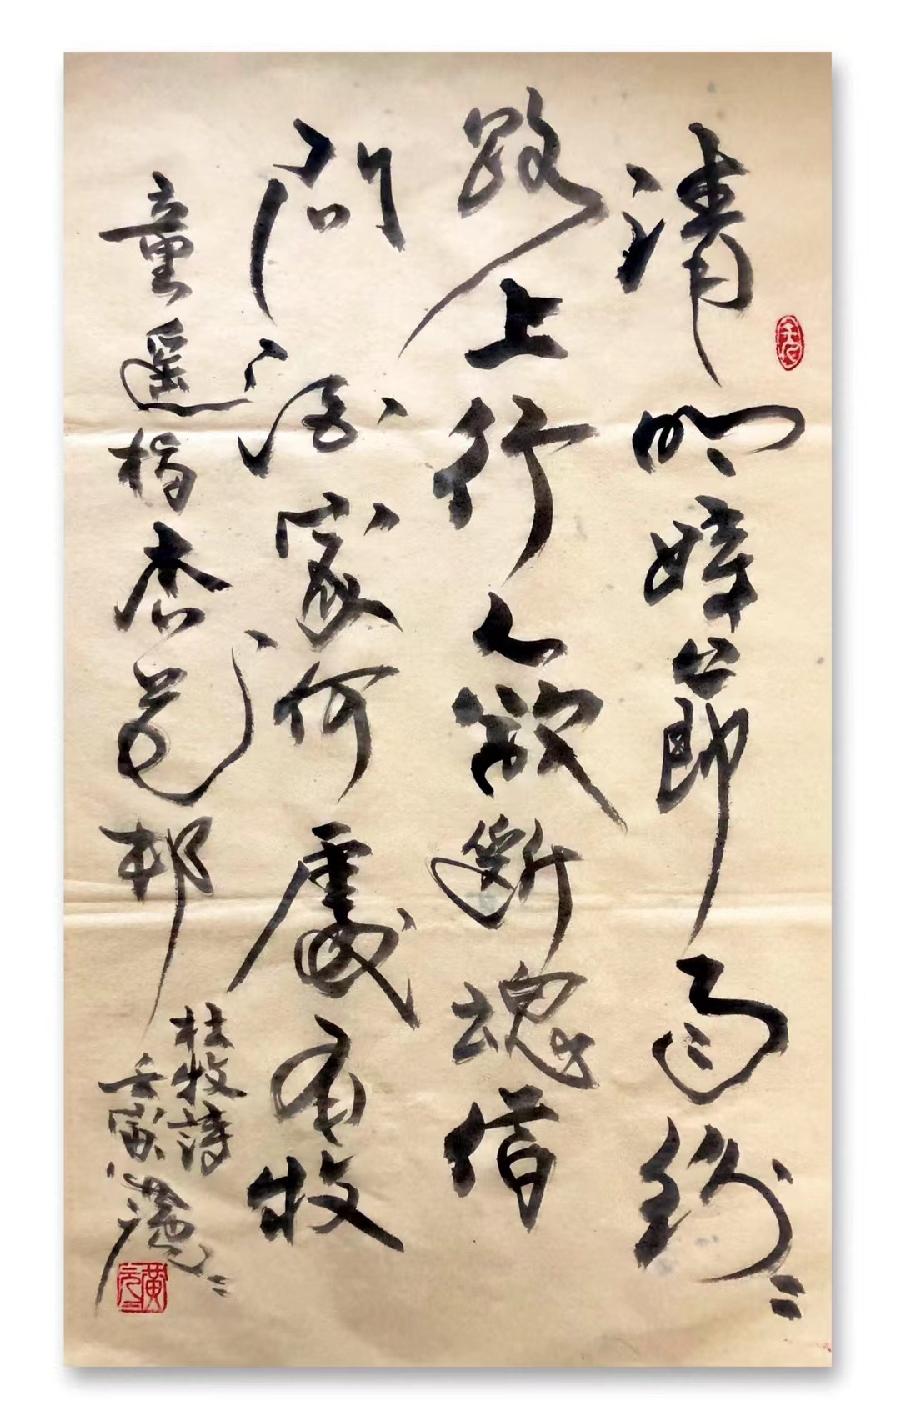 清明時節雨紛〻
路上行人欲斷魂借
問酒家何處有牧
童遥指杏花邨
杜牧詩
壬寅